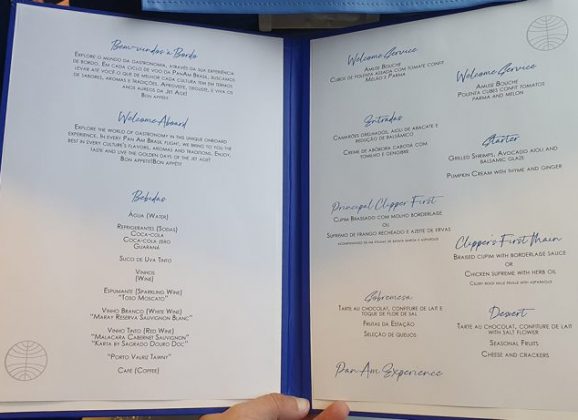 Bem-vindos a Bordo
Explore o mundo da gastronomia, através da sua experiência
de bordo. Em cada ciclo de voo da PanAm Brasil, buscamos
levar até você o que de melhor cada cultura tem em termos
de sabores, aromas e tradições. Aproveite, deguste, e viva os
anos áureos da Jet Age!
Bon appeti
Welcome Aboard
Explore the world of gastronomy in this unique onboard
experience. In every Pan Am Brasil flight, we bring to you the
best in every culture's flavors, aromas and traditions. Enjoy,
taste and live the golden days of the jet age!
Bon appetes!Bon appeti
Bebidas
Água (Water)
Refrigerantes (Sodas)
Coca-cola
Coca-cola zero
Guaraná
Suco de Uva Tinto
Vinhos
(Wine)
Espumante (Sparkling Wine)
"Toso Moscato"
Vinho Branco (White Wine)
"Maray Reserva Sauvignon Blanc"
Vinho Tinto (Red Wine)
"Malacara Cabernet Sauvignon"
"Karta by Sagrado Douro Doc"
"Porto Valriz Tawny"
Café (Coffee)
Welcome Service
Amuse Bouche
Cubos de polenta assada com tomate confit
Melão e Parma
Welcome Service
Amuse Bouche
Polenta cubes confit tomatos
parma and melon
Entradas
Camarões grelhados, aioli de abacate e
redução de balsâmico
Creme de abóbora cabotiá com
tomilho e gengibre
Starter
Grilled Shrimps, Avocado aioli and
balsamic glaze
Pumpkin Cream with thyme and ginger
Principal Clipper First
Cupim Braseado com molho borderlaise
ou
Supremo de frango recheado e azeite de ervas
Clipper's First Main
Braised cupim with borderlaise sauce
or
Chicken supreme with herb oil
Sobremesa
Tarte au chocolat, confiture de lait e
toque de flor de sal
Frutas da Estação
Seleção de queijos
Dessert
Tarte au chocolat, confiture de lait
with salt flower
Seasonal Fruits
Cheese and crackers
Pan Am Experience